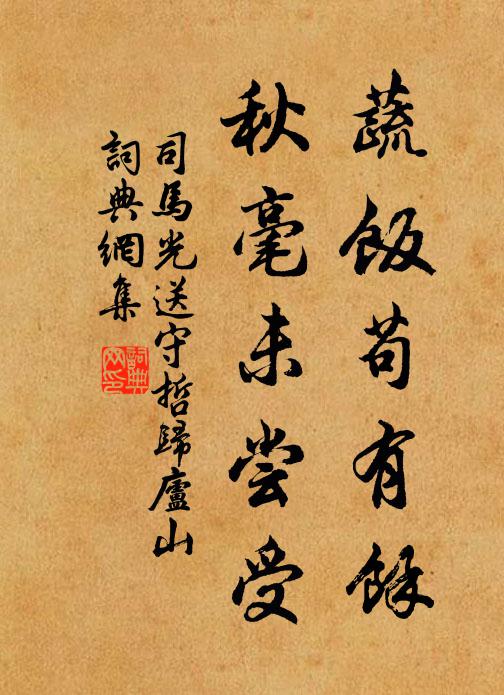 蔬飯苟有餘
秋毫未嘗受
司馬光送守哲歸廬山
詞典網集
詞典網印